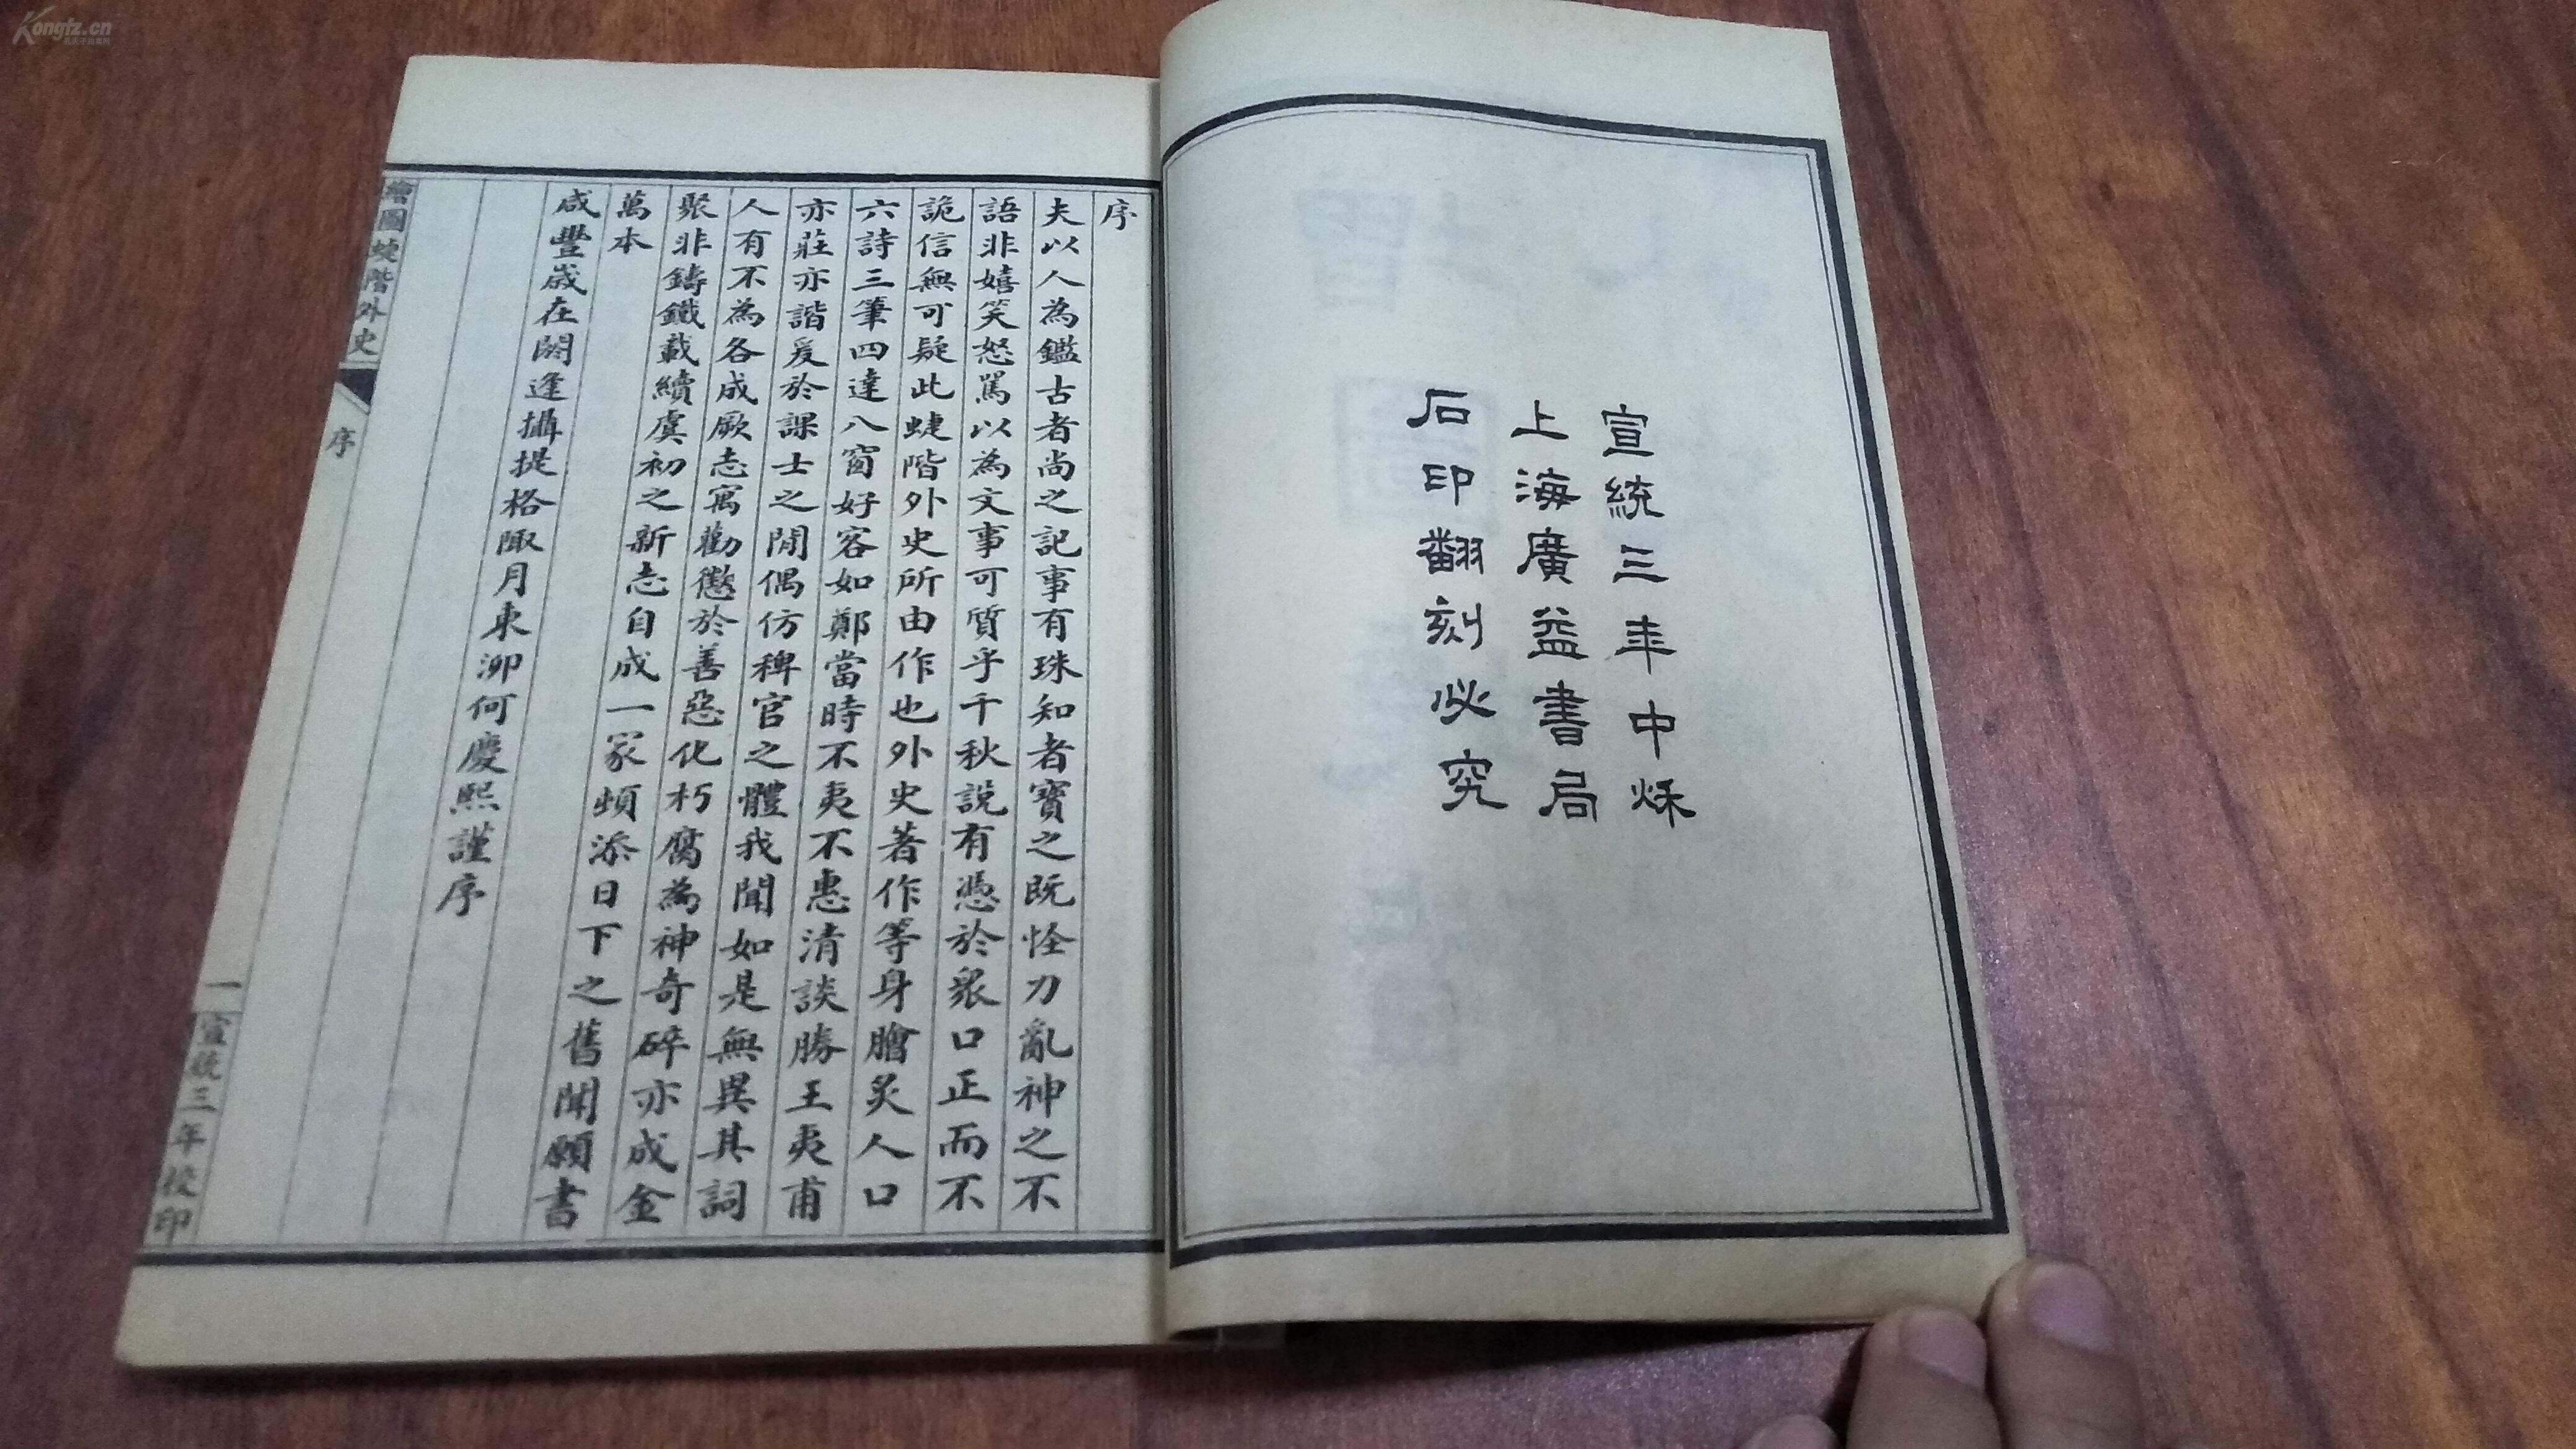 Kongfz.cn
宣統三年中秌
上海廣益書局
石印翻刻必究
序
夫以人為鑑古者尚之記事有珠知者寶之既怪刀亂神之不
語非嬉笑怒罵以為文事可質乎千秋說有憑於衆口正而不
詭信無可疑此蜨階外史所由作也外史著作等身膾炙人口
六詩三筆四達八窗好客如鄭當時不夷不惠清談勝王夷甫
亦莊亦諧爰於課士之閒偶仿稗官之體我聞如是無異其詞
人有不為各成厥志寓勸懲於善惡化朽腐為神奇碎亦成金
聚非鑄鐵載續虞初之新志自成一家頓添日下之舊聞願書
萬本
咸豐歲在閼逢攝提格陬月東泖何慶熙謹序
繪圖蜨階外史
序
一
宣統三年校印